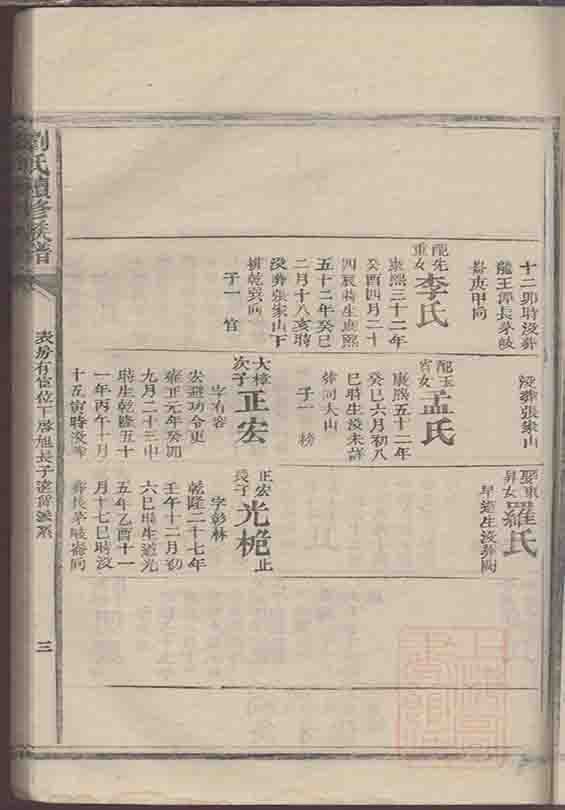 十二卯時没葬
龍王潭長茅岐
嵩庚甲向
配先
重女
李氏
康熙三十二年
癸酉四月二十
四辰時生康熙
五十二年癸巳
二月十八亥時
没葬張家山下
排乾巽向
子一 官
没葬張家山
配玉
官女
孟氏
康熙五十二年
癸巳六月初八
巳時生没未詳
葬同大山
子一 榜
大樟
次子
正宏
字有容
宏避功令更
雍正元年癸卯
九月二十三申
時生乾隆五十
一年丙午十月
十五寅時没葬
娶東
昇女
羅氏
早逝生没葬闕
正宏
長子
光桅
止
字彭林
乾隆二十七年
壬午十二月初
六巳時生道光
五年乙酉十一
月十七巳時没
葬長茅岐嵩向
劉氏續修族譜
表房有官位下啓旭長子達賢派系
三